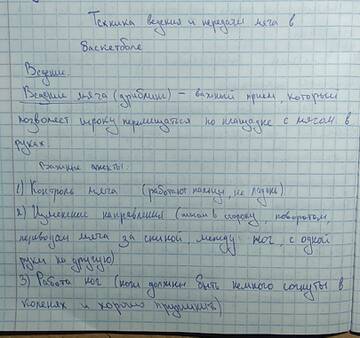 Техника ведения и передачи мяча в
Баскетболе
Ведение.
Ведение мяча (дриблинг) – важный прием, который
позволяет игроку перемещаться по площадке с мячом в
руках.
Важные аспекты:
1) Контроль мяча (работают пальцы, не ладонь)
2) Изменение направления (шагом в сторону, поворотом,
переводом мяча за спиной, между ног, с одной
руки на другую)
3) Работа ног (ноги должны быть немного согнуты в
коленях и хорошо пружинить)